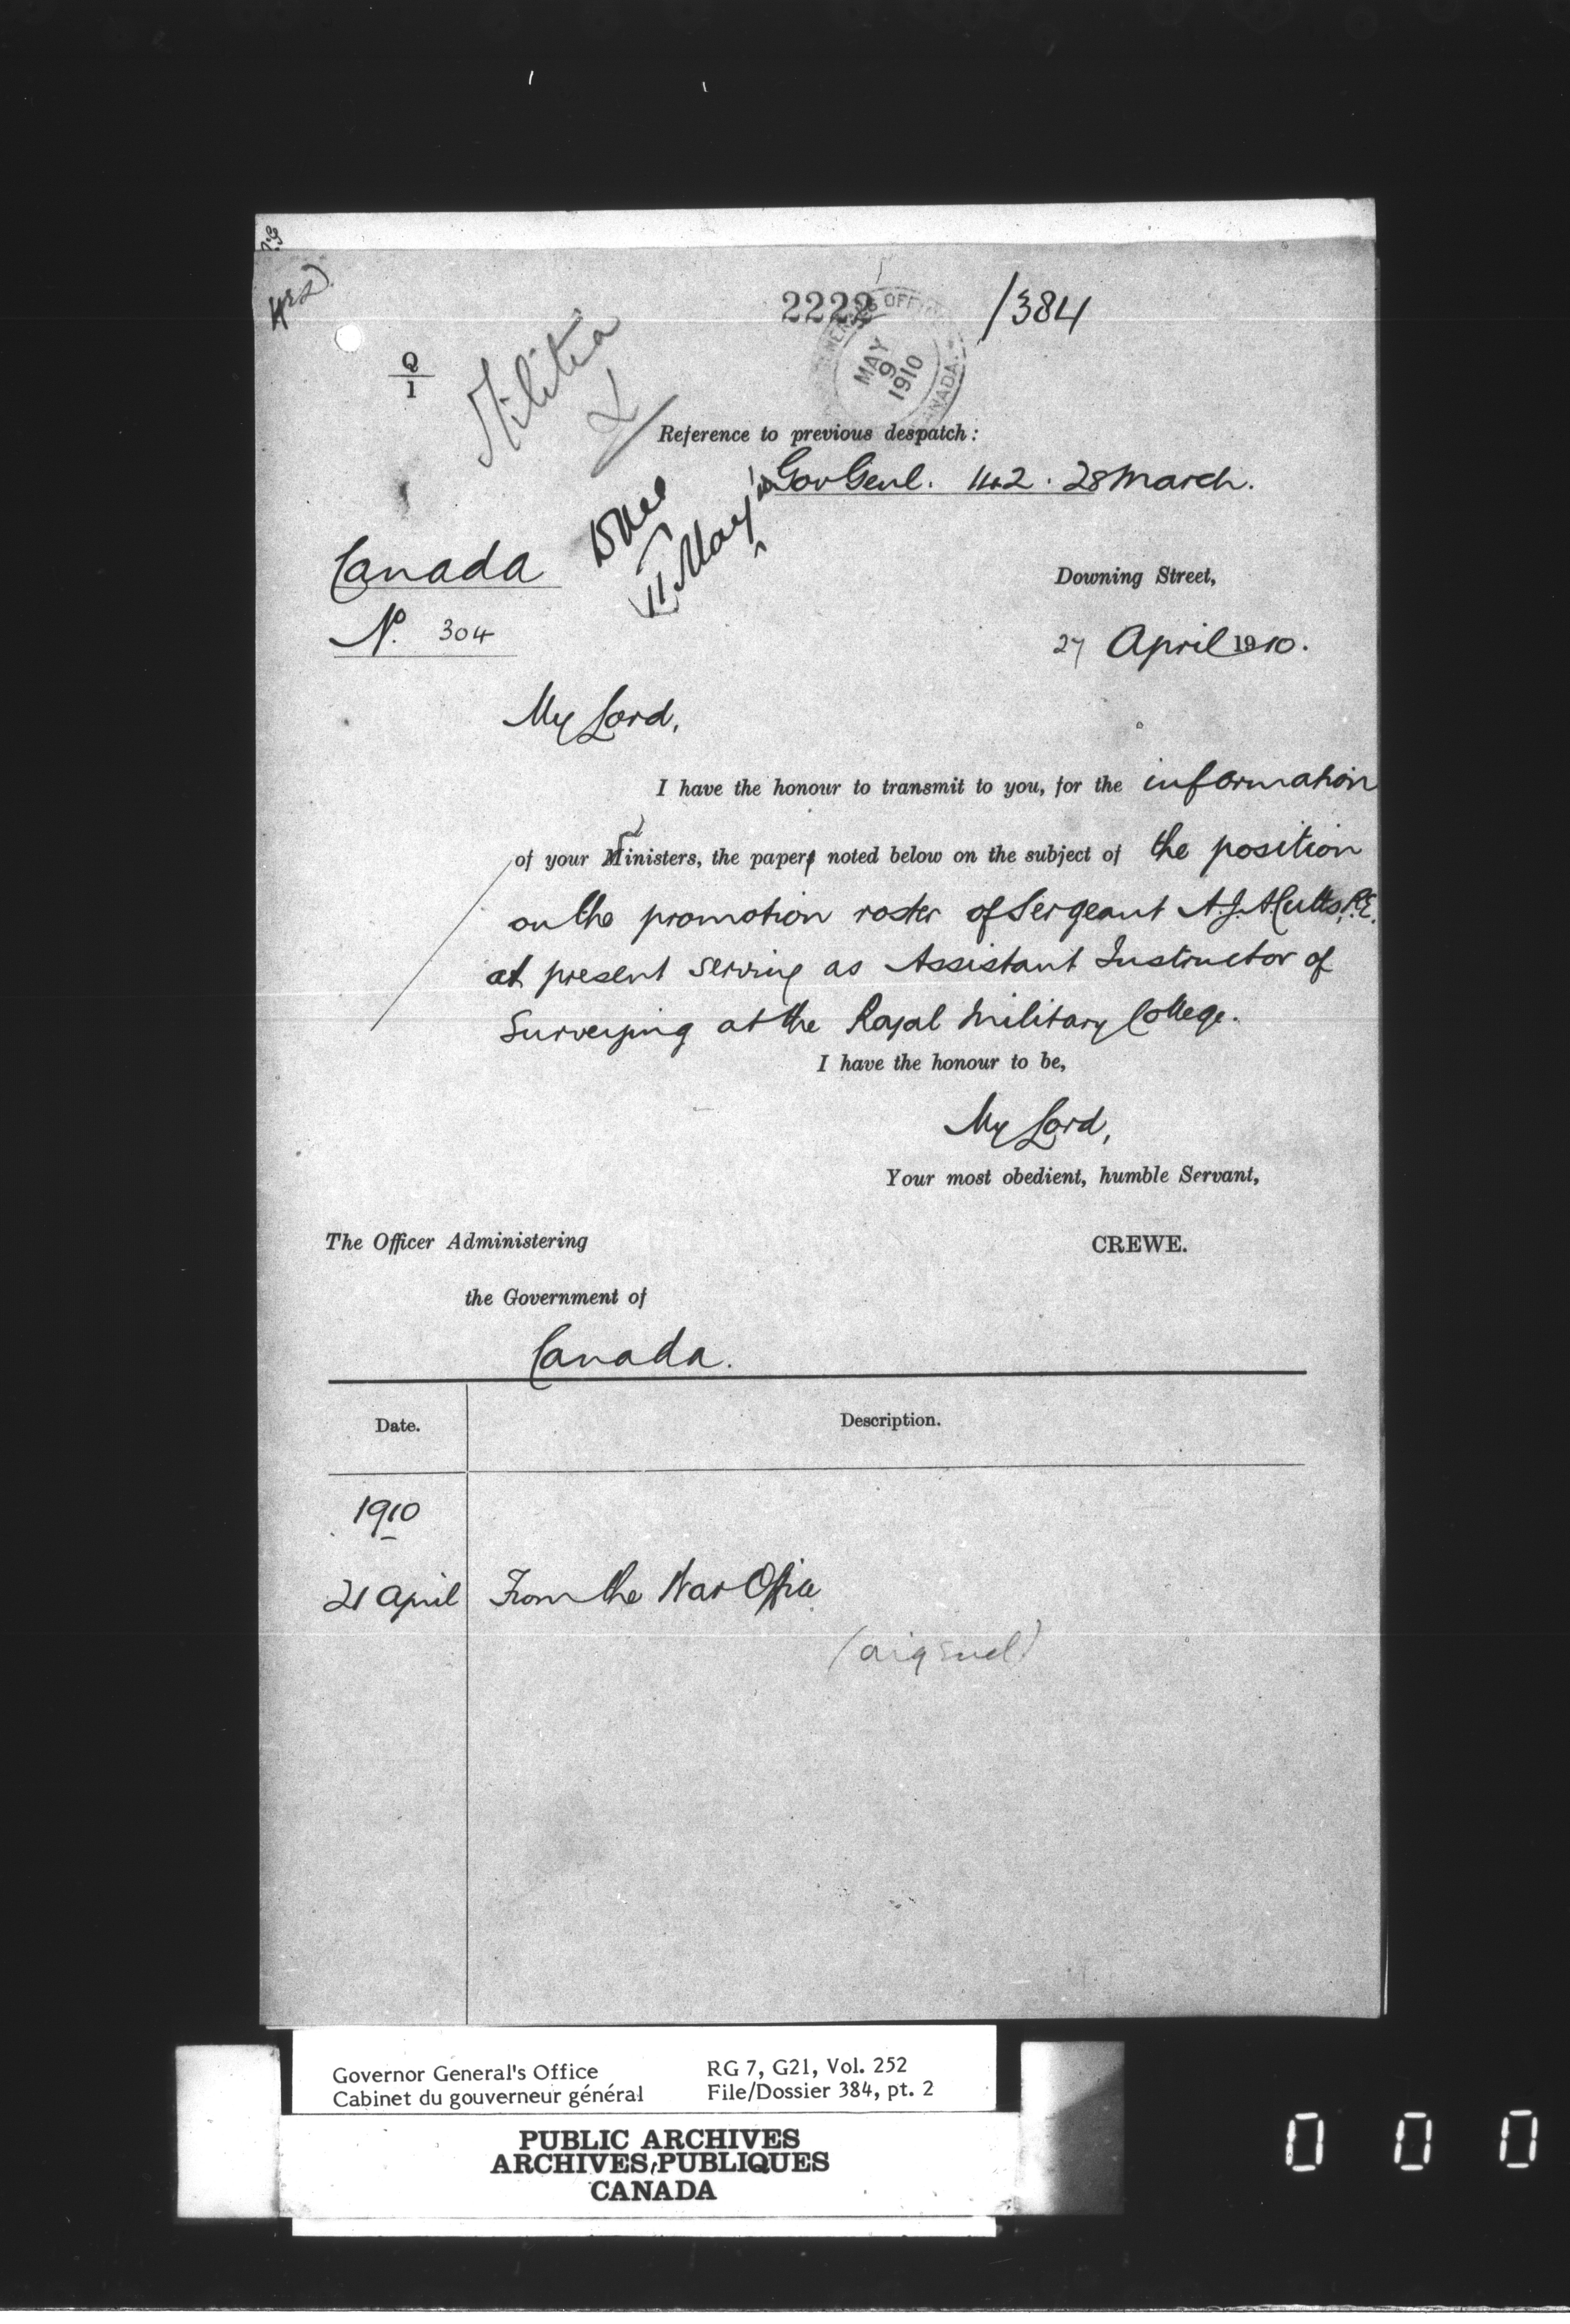 2222 /384
GENERAL'S OFFICE
MAY
9
1910
CANADA
Q
1
Militia
Reference to previous despatch:
Gov Genl. 142. 28 March.
11 May
Canada
Downing Street,
No. 304
27 April 1910.
My Lord,
I have the honour to transmit to you, for the information
of your Ministers, the paper noted below on the subject of the position
on the promotion roster of Sergeant A.J. A. Cutts, R.E.
at present serving as Assistant Instructor of
Surveying at the Royal Military College.
I have the honour to be,
My Lord,
Your most obedient, humble Servant,
The Officer Administering
CREWE.
the Government of
Canada.
Date.
Description.
1910
21 April From the War Office
Governor General's Office RG 7, G21, Vol. 252
Cabinet du gouverneur général File/Dossier 384, pt. 2
PUBLIC ARCHIVES
ARCHIVES PUBLIQUES
CANADA
0 0 0